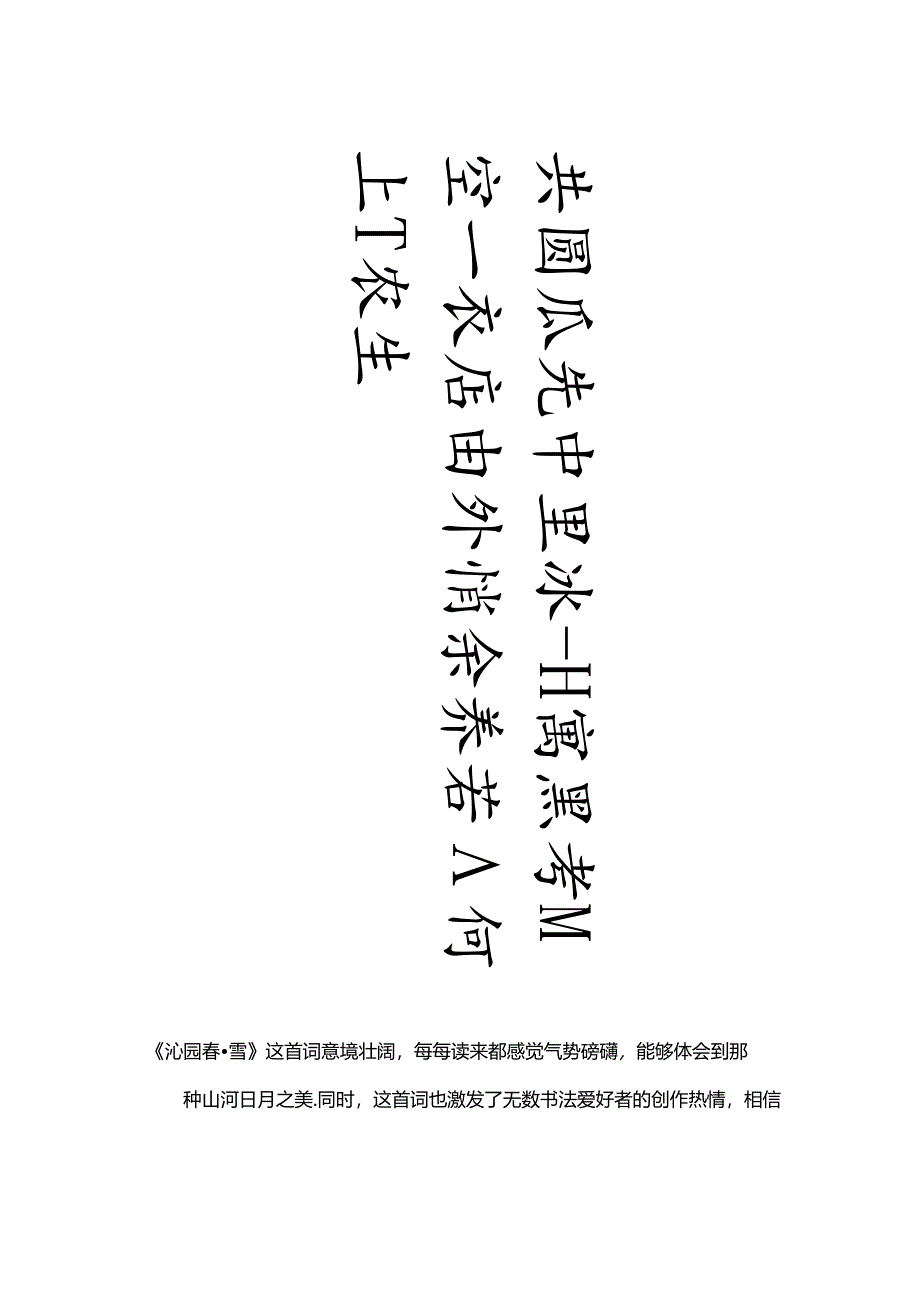 共圆瓜先中里冰-H寓黑考M
空一衣店由外悄余养若Λ何
上T农生
《沁园春•雪》这首词意境壮阔，每每读来都感觉气势磅礴，能够体会到那
种山河日月之美.同时，这首词也激发了无数书法爱好者的创作热情，相信